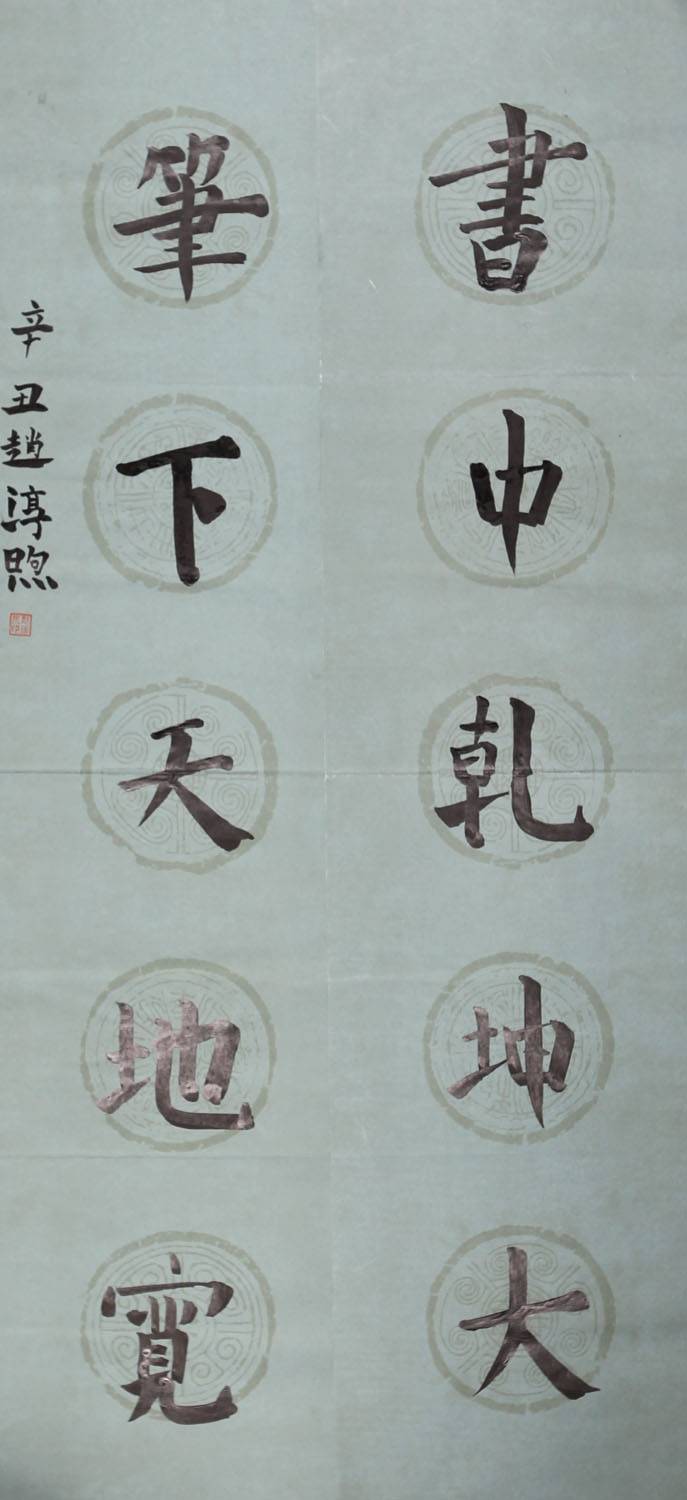 書中乾坤大
筆下天地寬
辛丑趙淳煦